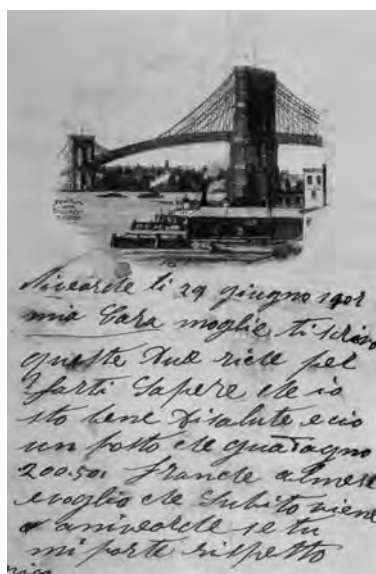 New York
and
Brooklyn
Bridge
Niveorche li 29 giugno
mia Cara moglie ti scrivo
queste Due riche per
farti Sapere che io
sto bene Disalute ecio
un posto che quadagno
Franche almese
evoglio che Subito viene
a niveorche se tu
mi porte rispetto